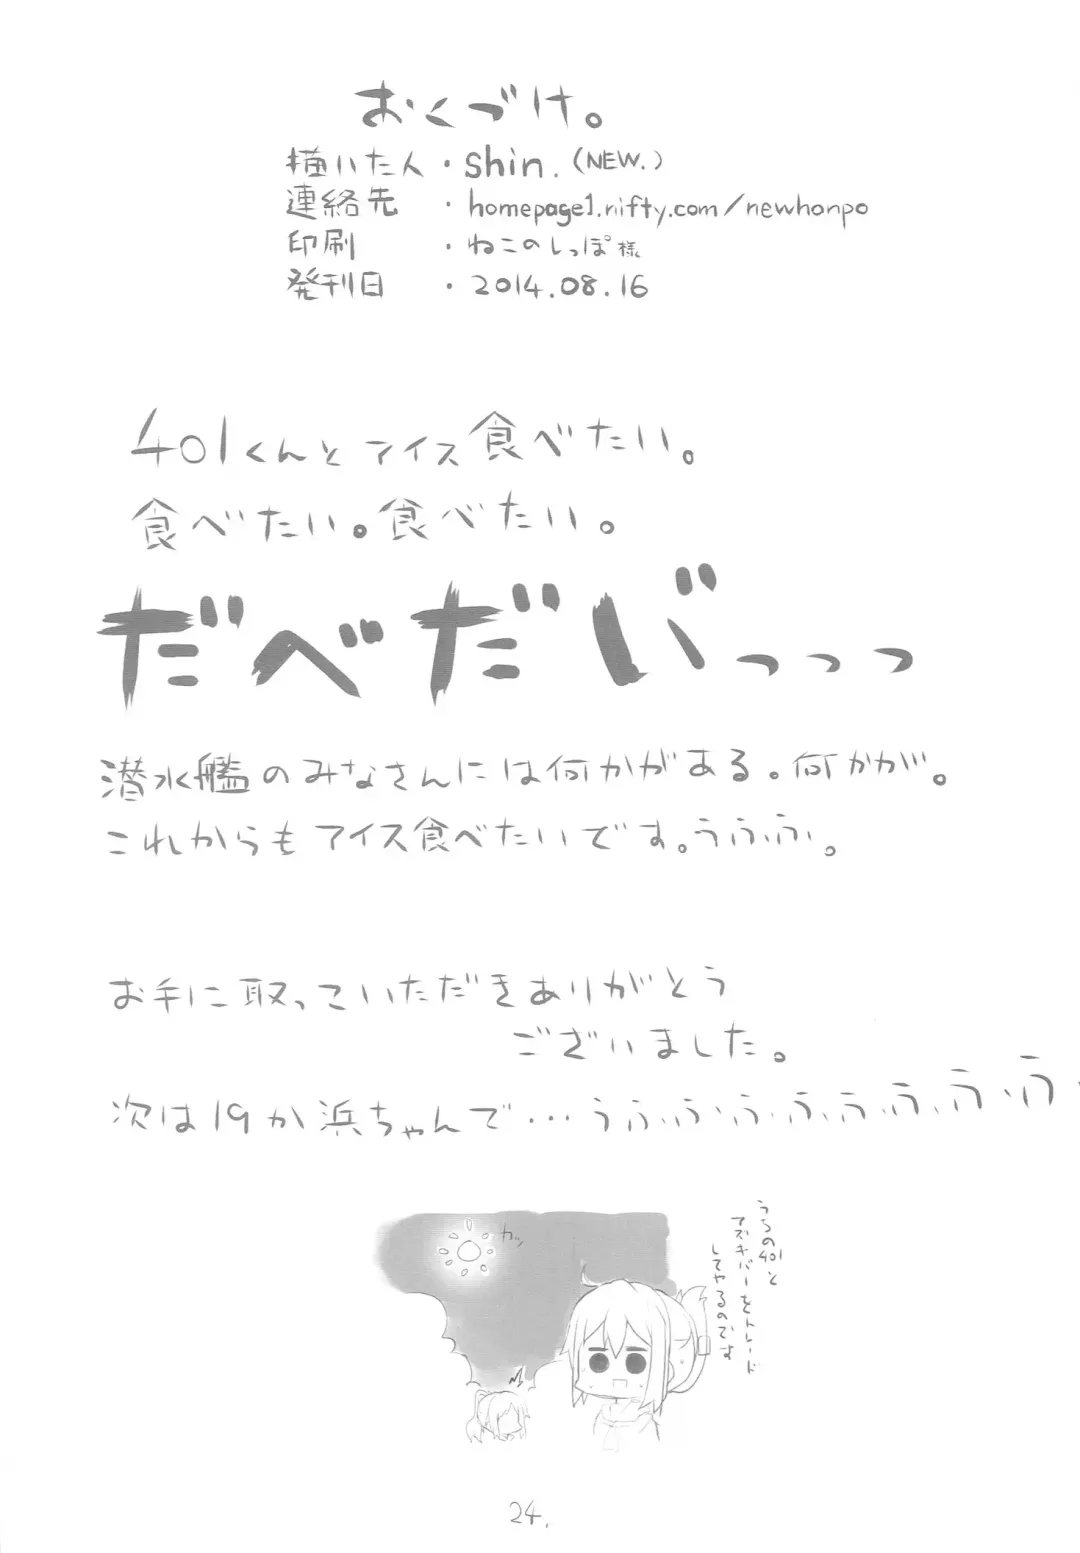 おくづけ。
描いた人・shin.(NEW.)
連絡先・homepage1.nifty.com/newhonpo
印刷・ねこのしっぽ様
発刊日・2014.08.16
401くんとアイス食べたい。
食べたい。食べたい。
だべだい゛っっっ
潜水艦のみなさんには何かがある。何かが。
これからもアイス食べたいです。うふふ。
お手に取っていただきありがとう
ございました。
次は19か浜ちゃんで・・・うふふふふうふふうふう
カッ
うちの401と
アズキバーをトレード
してやるのです
24.